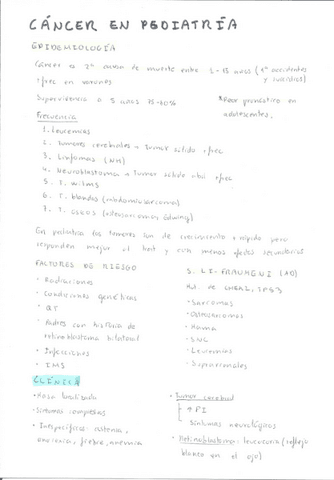 CÁNCER EN PEDIATRÍA
EPIDEMIOLOGÍA
Cáncer es 2ª causa de muerte entre 1-15 años (1ª accidentes
y suicidios)
+frec en varones
Supervivencia a 5 años 75-80%
*Peor pronóstico en
adolescentes.
Frecuencia
1. Leucemias
2. Tumores cerebrales → tumor sólido +frec
3. Linfomas (NH)
4. Neuroblastoma → tumor sólido abd +frec
5. T. wilms
6. T. blandos (rabdomiosarcoma)
7. T. óseos (osteosarcoma Edwing)
En pediatría los tumores son de crecimiento + rápido pero
responden mejor al tant y con menos efectos secundarios
FACTORES DE RIESGO
· Radiaciones
· Condiciones genéticas
· QT
· Padres con historia de
retinoblastoma bilateral
· Infecciones
· IMS
S. LI-FRAUMENI (AD)
Mut. de TP53
- Sarcomas
- Osteosarcomas
- Mama
- SNC
- Leucemias
- Suprarrenales
CLÍNICA
· Masa localizada
· Síntomas compresivos
· Inespecíficos: astenia,
anorexia, fiebre, anemia
· Tumor cerebral
↑ PI
Síntomas neurológicos
· Retinoblastoma: leucocoria (reflejo
blanco en el ojo)